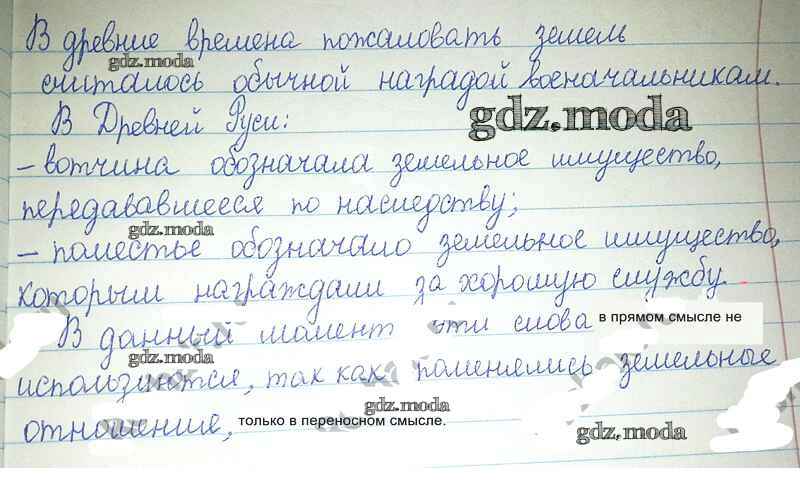 В древние времена пожаловать земель
gdz.moda
считалось обычной наградой военачальникам.
В Древней Руси:
gdz.moda
– вотчина обозначала земельное имущество,
передававшееся по наследству;
gdz.moda
– поместье обозначало земельное имущество,
которым награждали за хорошую службу.
В данный момент эти слова в прямом смысле не
gdz.moda
используются, так как поменялись земельные
gdz.moda
отношение, только в переносном смысле.
gdz.moda